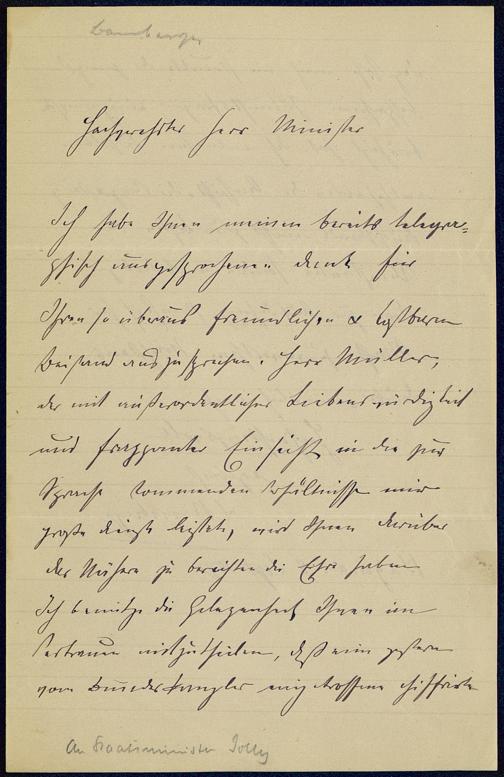 Bamberger
Hochgeehrter Herr Minister
Ich habe Ihnen meinen bereits telegra-
phisch ausgesprochenen Dank für
Ihren so überaus freundlichen & kostbaren
Beistand auszusprechen. Herr Müller,
der mit außerordentlicher Liebenswürdigkeit
und frappanter Einsicht in die zur
Sprache kommenden Verhältnisse mir
große Dienste leistete, wird Ihnen darüber
das Nähere zu berichten die Ehre haben
Ich benutze die Gelegenheit Ihnen im
Vertrauen mitzutheilen, daß ein gestern
vom Bundeskanzler eingetroffene chiffrirte
An Staatsminister Jolly